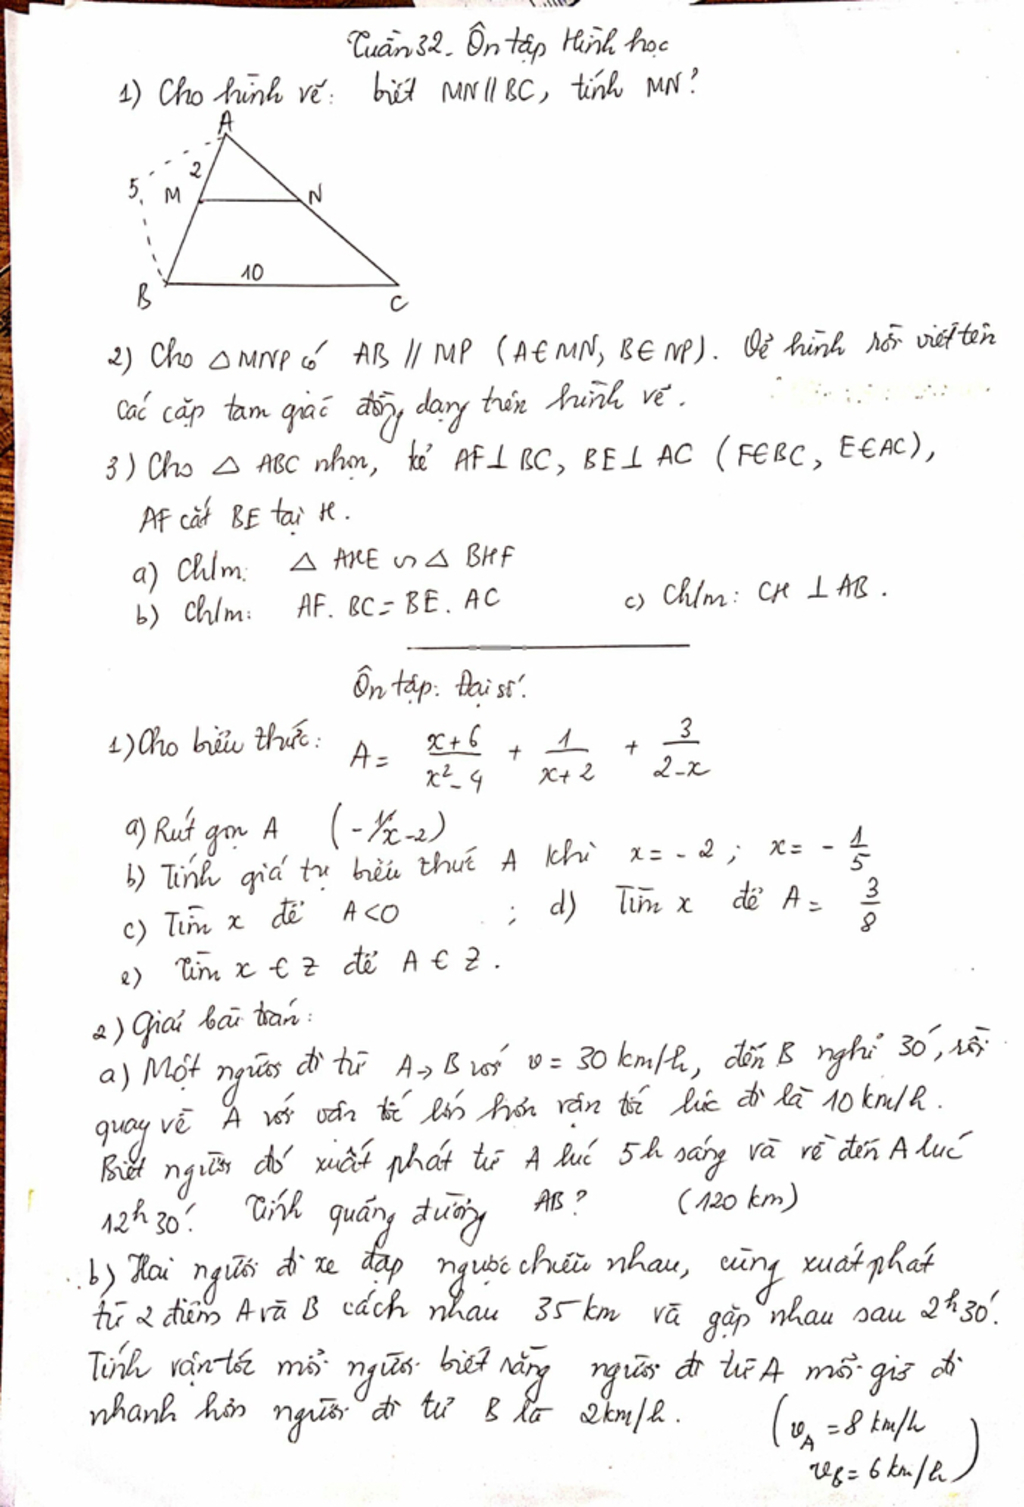 Tuần 32. Ôn tập Hình học
1) Cho hình vẽ: biết MN // BC, tính MN?
A
2
5
M
N
10
B
C
2) Cho △MNP có AB // MP (A∈MN, B∈NP). Vẽ hình rồi viết tên
các cặp tam giác đồng dạng trên hình vẽ.
3) Cho △ ABC nhọn, kẻ AF⊥BC, BE⊥AC (F∈BC, E∈AC),
AF cắt BE tại H.
a) Ch/m: △ AHE ∽ △ BHF
b) Ch/m: AF. BC = BE. AC c) Ch/m: CH ⊥ AB.
Ôn tập: Đại số.
1) Cho biểu thức: A = (x+6)/(x²-4) + 1/(x+2) + 3/(2-x)
a) Rút gọn A (-1/x-2)
b) Tính giá trị biểu thức A khi x = -2; x = -1/5
c) Tìm x để A<0 ; d) Tìm x để A = 3/8
e) Tìm x ∈ Z để A ∈ Z.
2) Giải bài toán:
a) Một người đi từ A→B với v = 30 km/h, đến B nghỉ 30', rồi
quay về A với vận tốc lớn hơn vận tốc lúc đi là 10 km/h.
Biết người đó xuất phát từ A lúc 5h sáng và về đến A lúc
12h30'. Tính quãng đường AB? (120 km)
b) Hai người đi xe đạp ngược chiều nhau, cùng xuất phát
từ 2 điểm A và B cách nhau 35 km và gặp nhau sau 2h30'.
Tính vận tốc mỗi người biết rằng người đi từ A mỗi giờ đi
nhanh hơn người đi từ B là 2km/h.
(vA = 8 km/h
vB = 6 km/h)